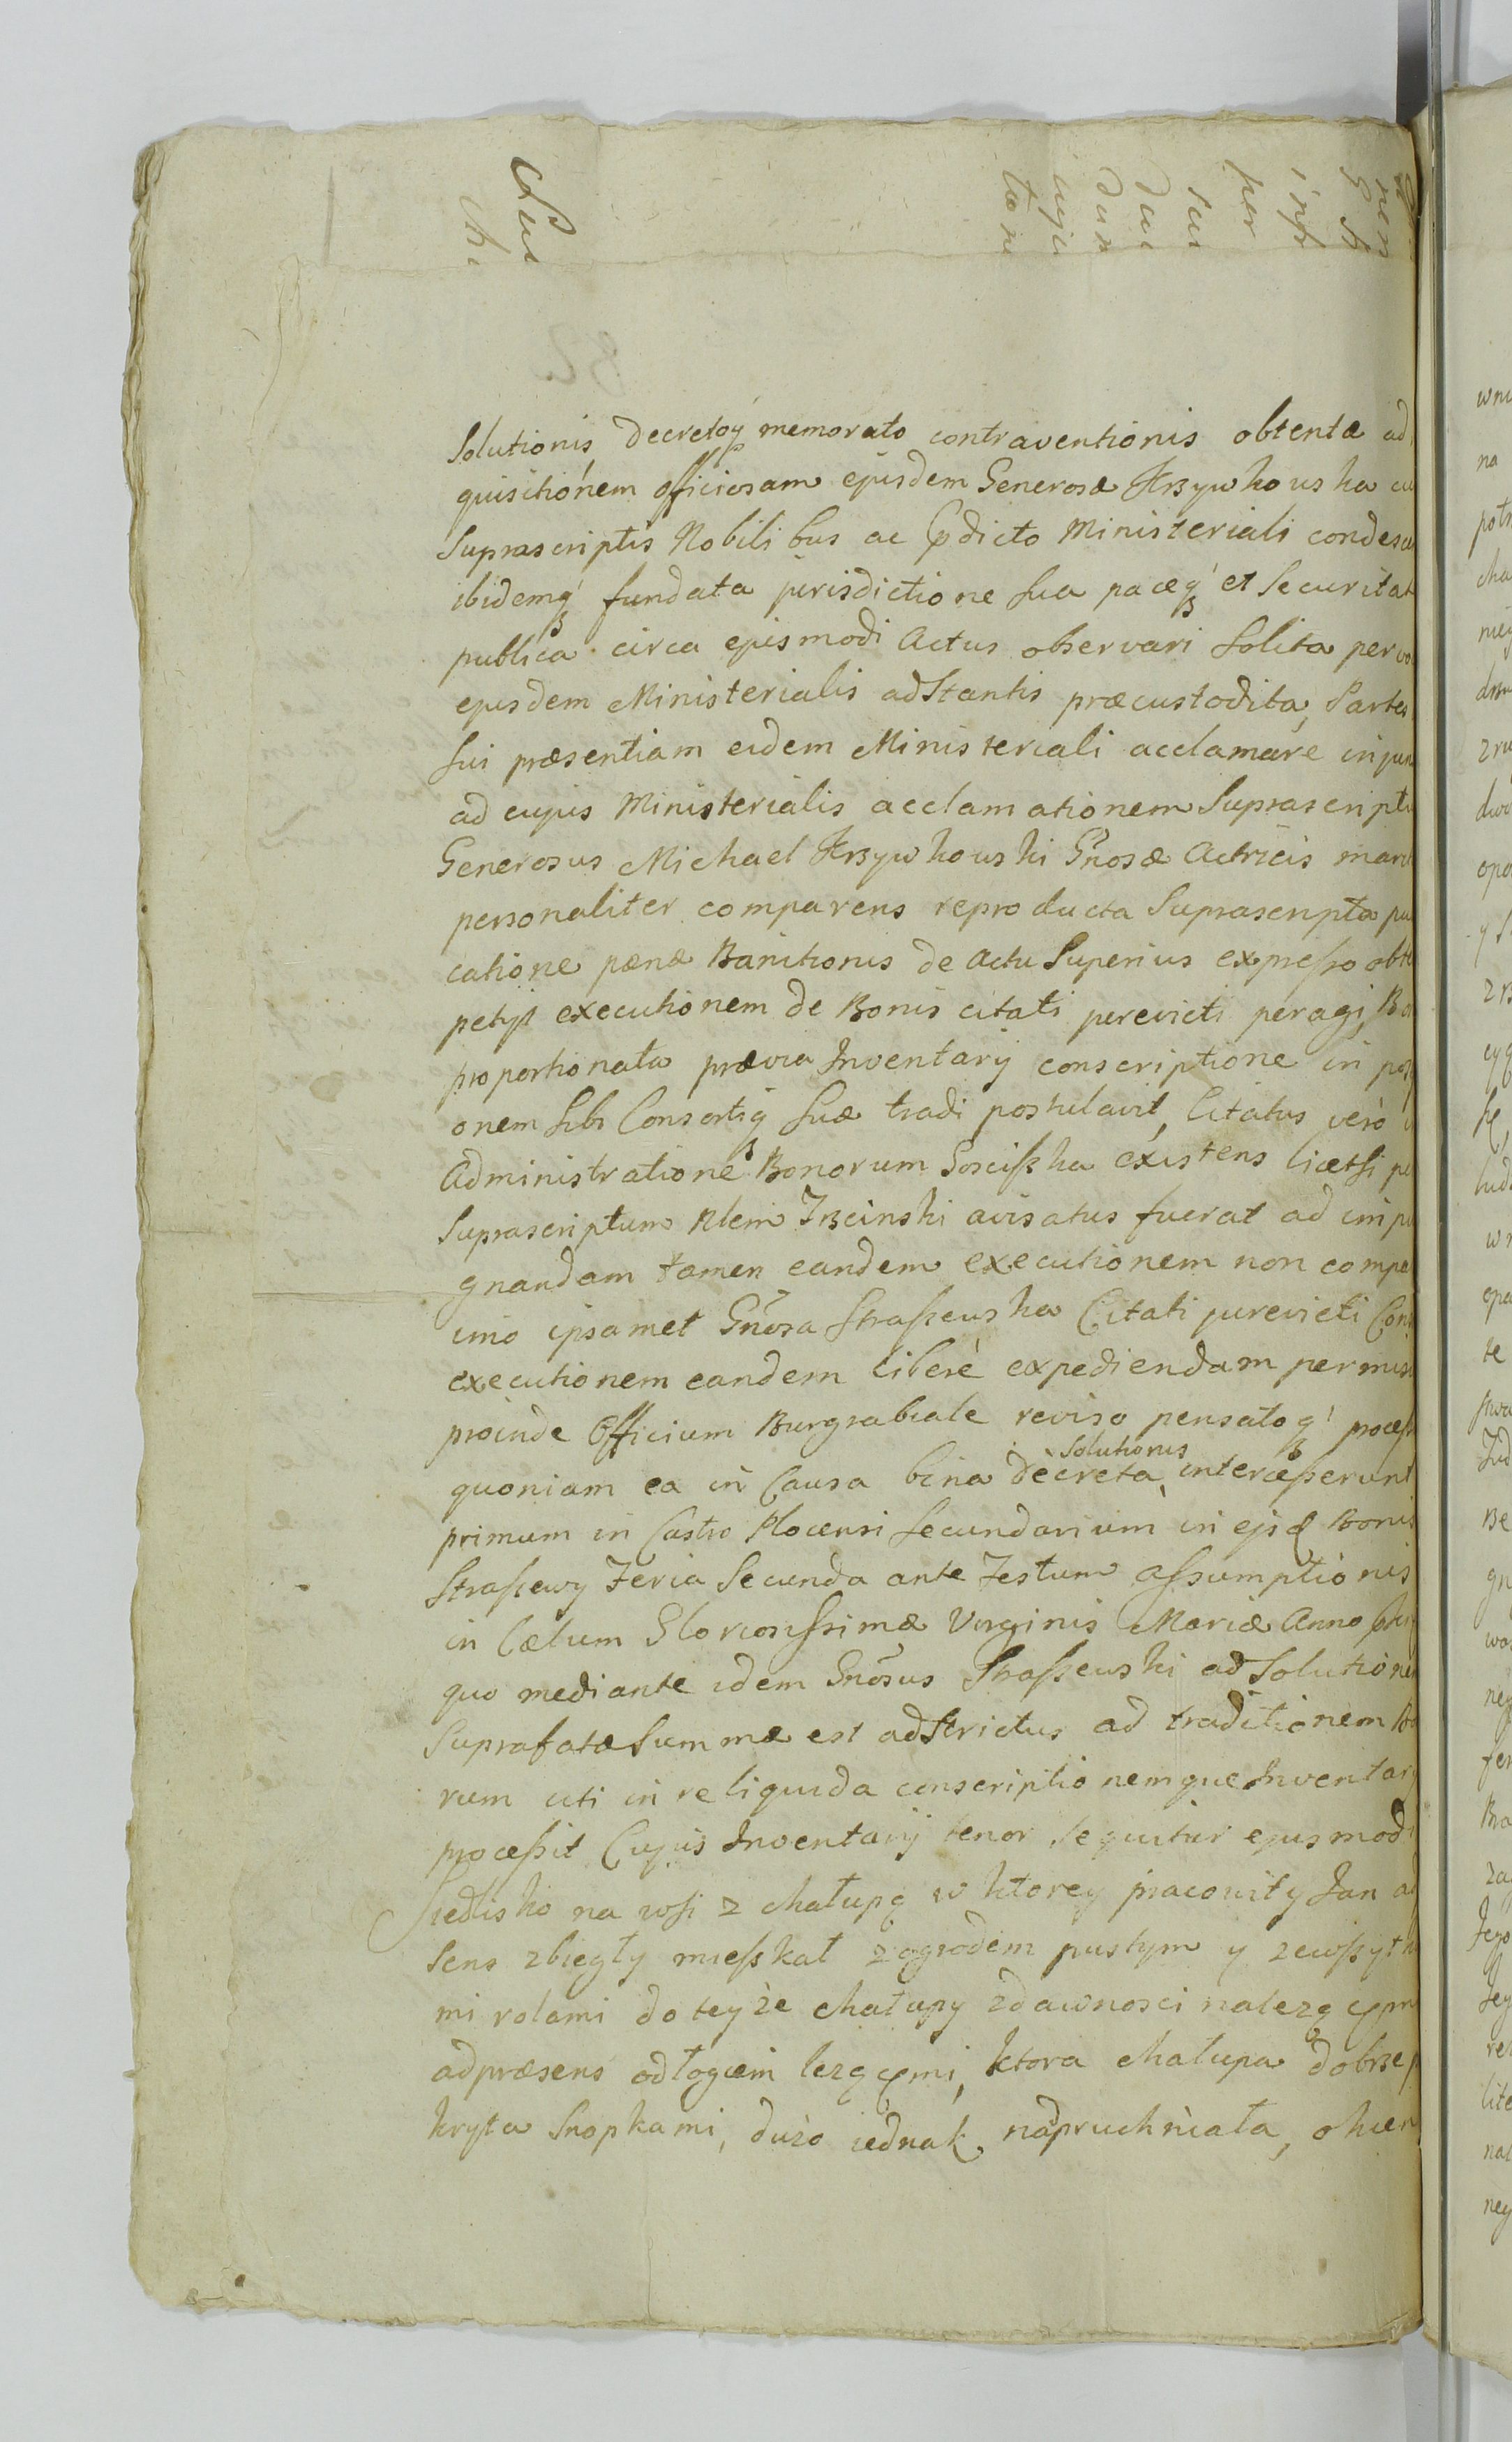 Solutionis, decretoq̃ memorato contraventionis obtentæ ad
quisitionem officiosam ejusdem Generosæ Krzywkouska cu
Suprascriptis Nobilibus ac pdicto Ministeriali condesce
ibidemq́ fundata jurisdictione sua paceq́ et Securitat
publica circa ejusmodi Actus observari solita per vo
ejusdem Ministerialis adstantis præcustodita, Partes
sui præsentiam eidem Ministeriali acclamare injun
ad cujus Ministerialis acclamationem Suprascripti
Generosus Michael Krzywkouski Gnosæ Actricis mari
personaliter comparens reproducta Suprascripta pu
catione pænæ Banitionis de actu Superius expresso obte
petyt executionem de Bonis citati jurevicti peragi, Bo
proportionata prævia Inventarij conscriptione in poss
onem sibi Consortiq́ suæ tradi postulavit, Citatus verò i
Administratione Bonorum Sosciszka existens licetsi pe
Suprascriptum Mlem Trzcinski avisatus fuerat ad impu
gnandam tamen eandem executionem non compa
imo ipsamet Gnosa Straszewska Citati jurevicti Cons
executionem eandem liberè expediendam permisi
proinde Officium Burgrabiale reviso pensatoq́ process
Solutionis
quoniam ea in Causa bina decreta intercesserunt
primum in Castro Plocensi Secundarium in ejsd Bonis
Straszewy Feria Secunda ante Festum Assumptionis
in Cælum Gloriosissimæ Virginis Mariæ Anno
quo mediante idem Gnosus Straszewski ad Solutione
Suprafatæ Summæ est adstrictus ad traditionem Bo
rum uti in re liquida conscriptionemque Inventarij
processit Cujus Inventarij tenor sequitur ejusmodi
Siedlisko na wsi z chałupą w ktorey pracowity Jan ad
sens zbiegły mieszkał z ogrodem pustym y zewszytk
mi rolami do teyże chałupy zdawnosci należącymi
adpræsens odłogiem leżącymi, ktora chałupa dobrze p
kryta Snopkami, dużo iednak nadpruchniała, okien